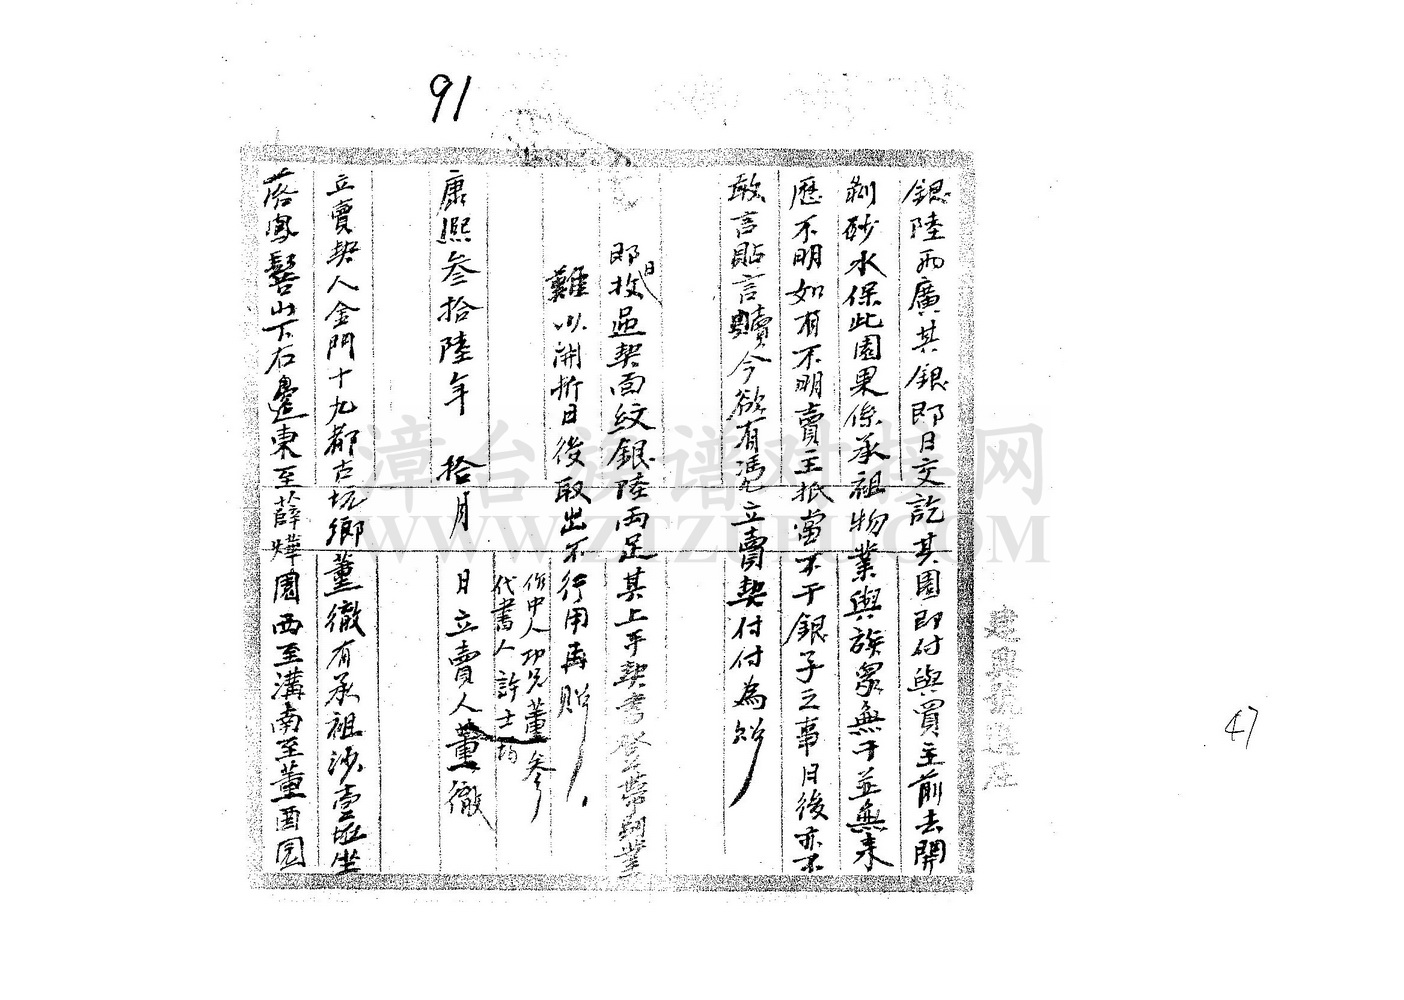 91
銀陸兩廣其銀即日交訖其園即付與買主前去開
剃砂水保此園果係承祖物業與族眾無干並無来
歷不明如有不明賣主抵當不干銀子之事日後亦不
敢言貼言贖今欲有憑立賣契付付為炤
即日收過契面紋銀陸兩足其上手契考登帶別業
難以開折日後取出不行用再炤
作中人功兄董參
代書人許士均
康熙叁拾陸年 拾月 日立賣人董徹
立賣契人金門十九都古坑鄉董徹有承祖沙壹坵坐
落鳳髻山下右邊東至薛燁園西至溝南至董酉园
建興號
漳台族谱对接网
WWW.ZTZUPU.COM
47